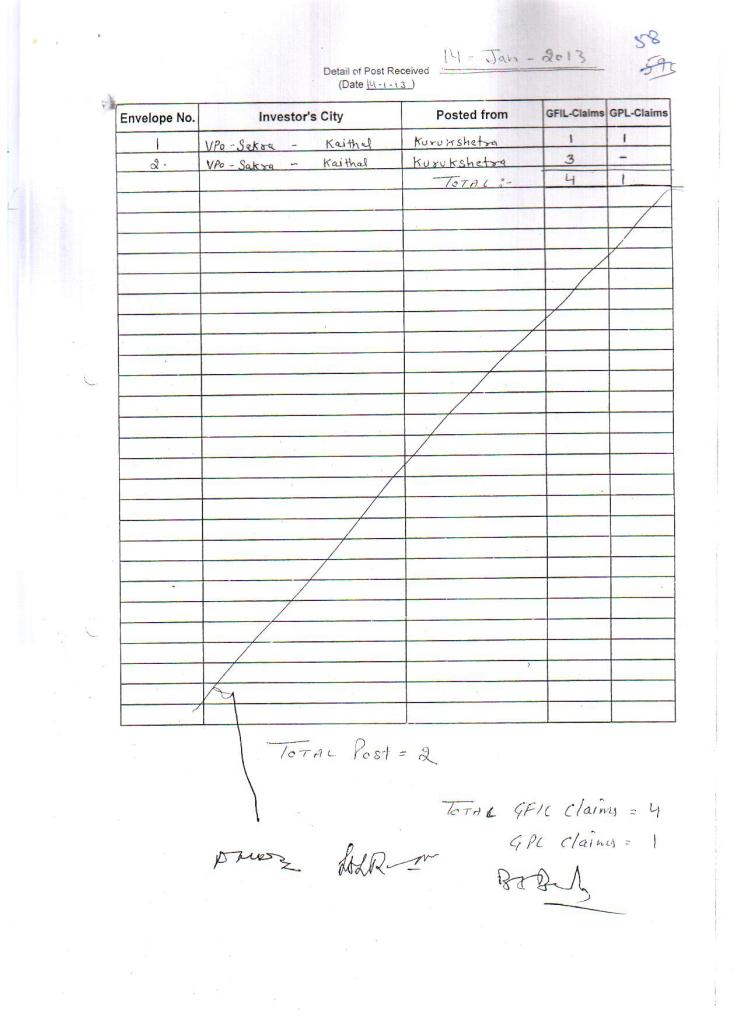 58
14 - Jan - 2013
Detail of Post Received
(Date 14-1-13)
Envelope No. Investor's City Posted from GFIL-Claims GPL-Claims
1 VPO - Sakra - Kaithal Kurukshetra 1 1
2. VPO - Sakra - Kaithal Kurukshetra 3 -
TOTAL :- 4 1
TOTAL Post = 2
TOTAL GFIL Claims = 4
GPL Claims = 1